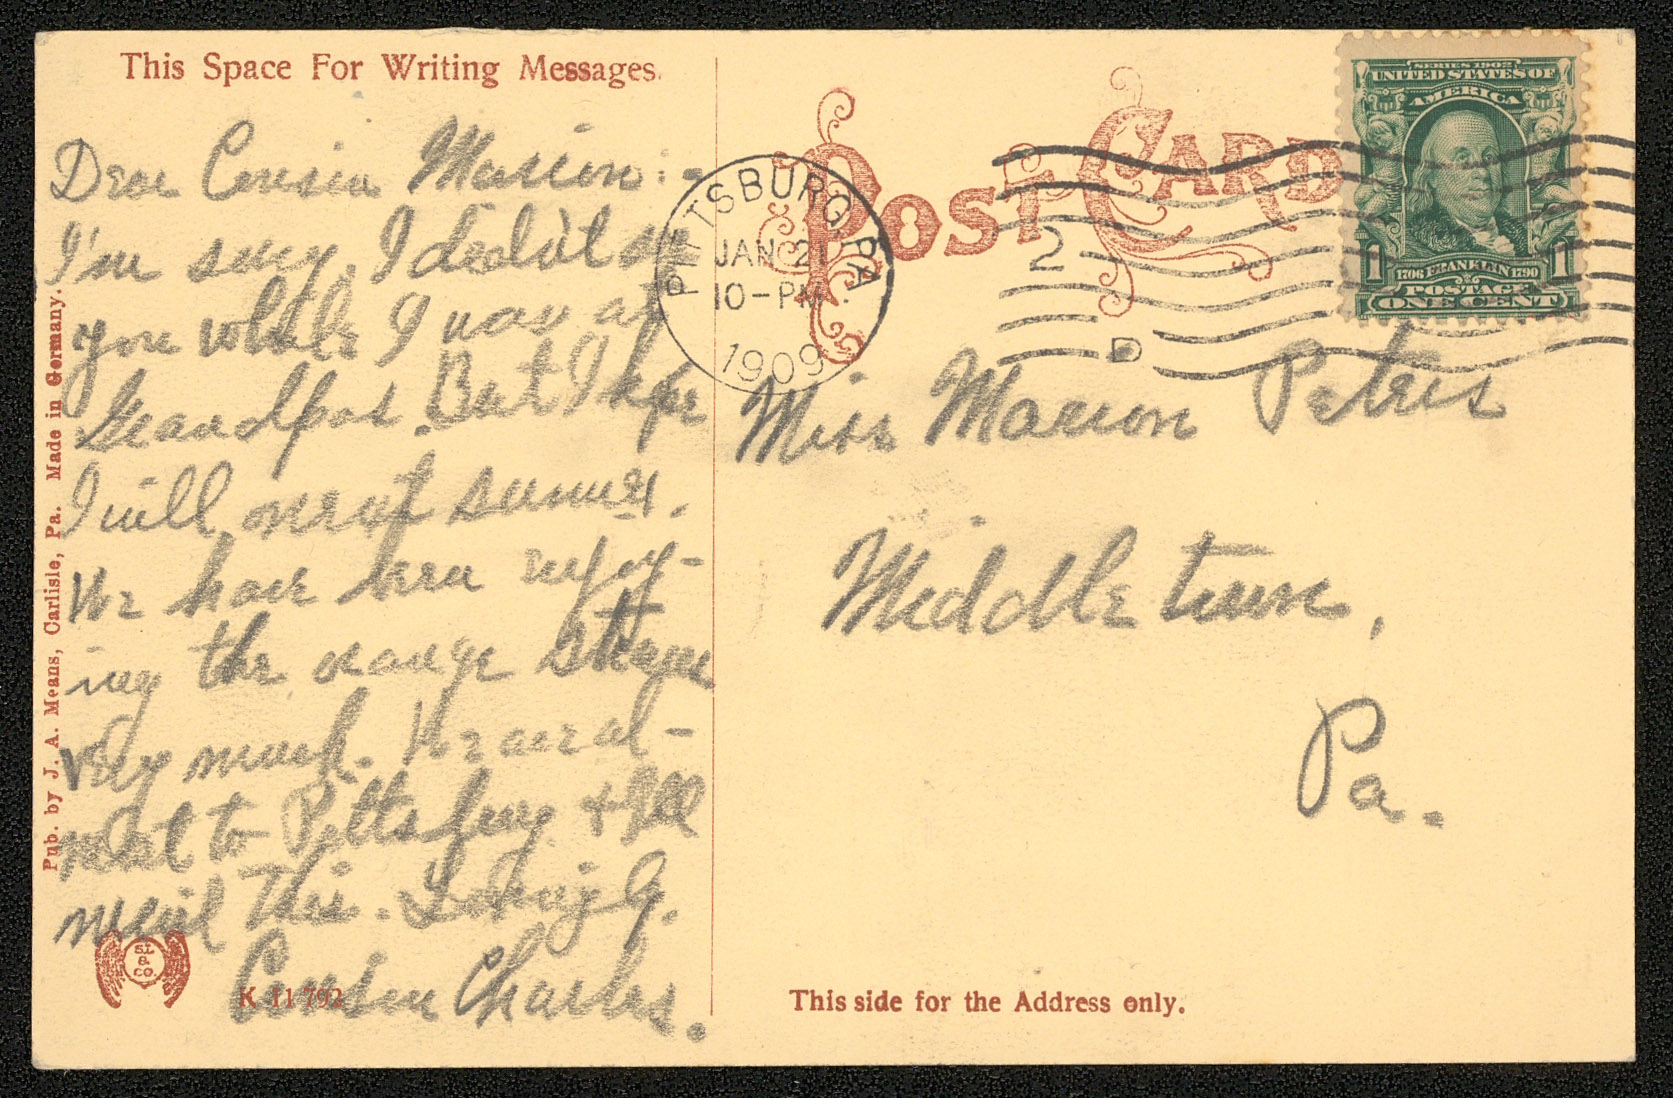 This Space For Writing Messages.
Dear Cousin Marion:-
I'm sorry, I didn't see
you while I was at
Grandpas. But I hope
I will next summer.
We have been enjoy-
ing the orange
very much. We are al-
most to Pittsburg & I'll
mail this. Lovingly.
Cousin Charles.
Pub. by J. A. Means, Carlisle, Pa. Made in Germany.
S.L
&
CO.
K 11792
POST CARD
PITTSBURG, PA
JAN 21
10-PM
1909
2
D
SERIES 1902
UNITED STATES OF
AMERICA
1 1
1706 FRANKLIN 1790
POSTAGE
ONE CENT
Miss Marion Peters
Middletown,
Pa.
This side for the Address only.